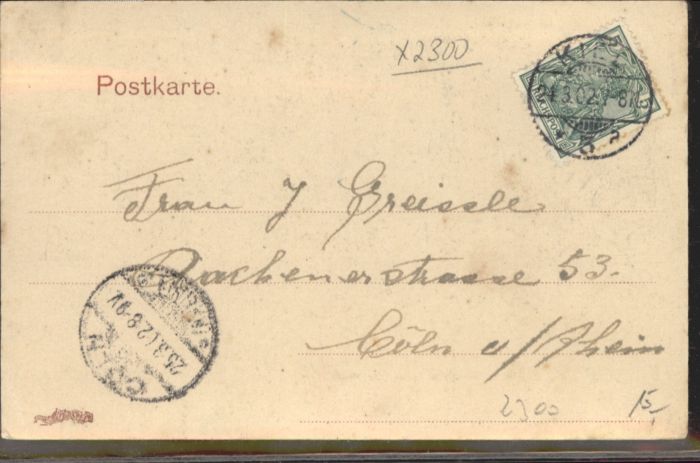 x2300
Postkarte.
KIEL
24.3.02. 7-8N
5 a
Frau J Greissle
Aachenerstrasse 53.
Cöln a/Rhein
CÖLN
25.3.02.8-9V
2300 15,-